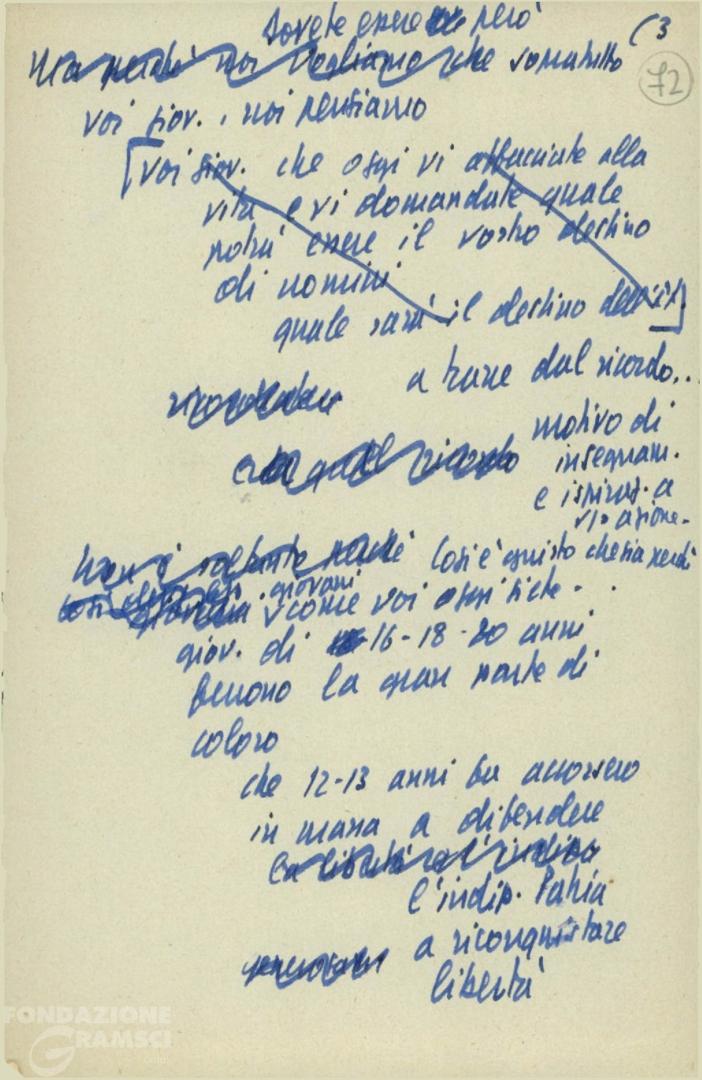 Dovete essere però
(3
72
Ma perché noi vogliamo che soprattutto
voi giov., noi pensiamo
[voi giov. che oggi vi affacciate alla
vita e vi domandate quale
potrà essere il vostro destino
di uomini
quale sarà il destino dell'
a trarre dal ricordo..
motivo di
insegnam.
e ispiraz. a
vs azione-
Non è soltanto perché così è giusto che sia perché
giovani
come voi oggi siete - . .
giov. di 16-18-20 anni
furono la gran parte di
coloro
che 12-13 anni fa accorsero
in massa a difendere
la libertà e l'indip
l'indip. Patria
a riconquistare
libertà
FONDAZIONE
GRAMSCI